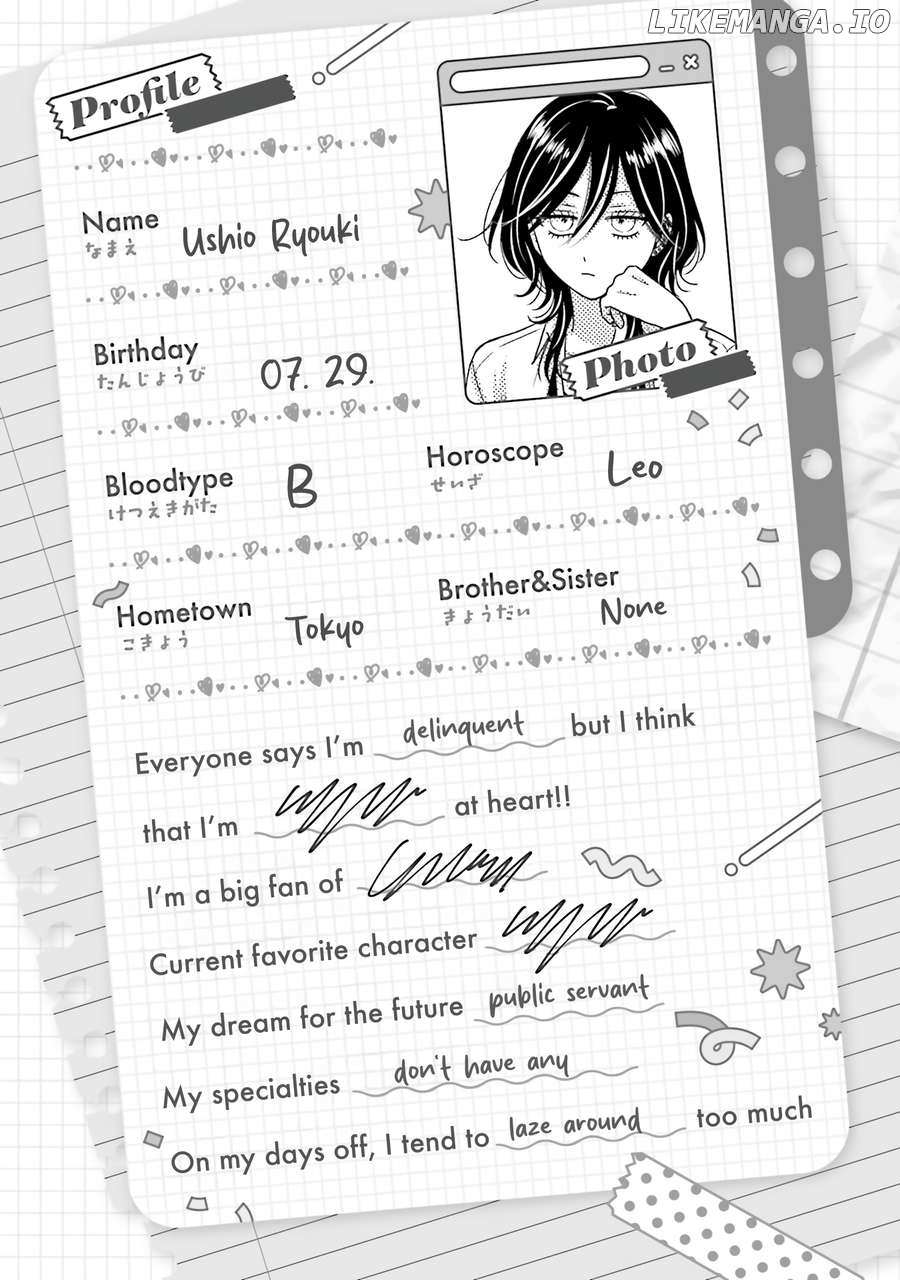 LIKEMANGA.IO
Profile
Name
なまえ
Ushio Ryouki
Birthday
たんじょうび
07. 29.
Photo
Bloodtype
けつえきがた
B
Horoscope
せいざ
Leo
Hometown
こきょう
Tokyo
Brother&Sister
きょうだい
None
Everyone says I'm delinquent but I think
that I'm at heart!!
I'm a big fan of
Current favorite character
My dream for the future public servant
My specialties don't have any
On my days off, I tend to laze around too much